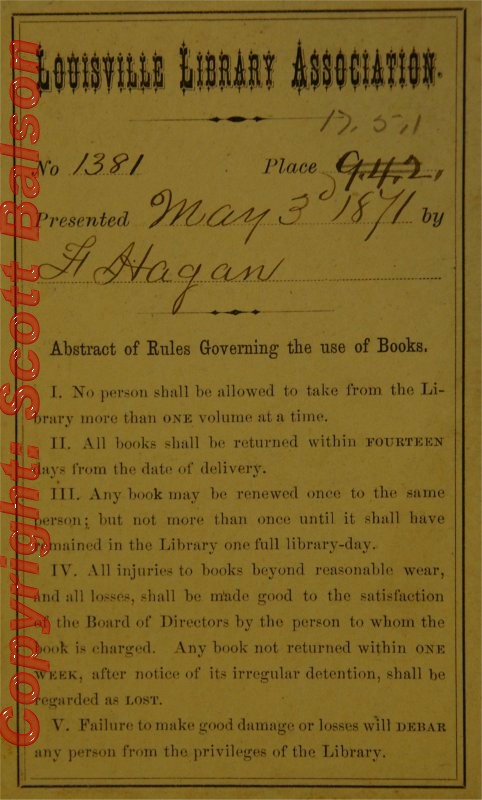 Louisville Library Association.
17.5.1
No 1381 Place 9.4.2.
Presented May 3d 1871 by
F Hagan
Abstract of Rules Governing the use of Books.
I. No person shall be allowed to take from the Li-
brary more than ONE volume at a time.
II. All books shall be returned within FOURTEEN
days from the date of delivery.
III. Any book may be renewed once to the same
person; but not more than once until it shall have
remained in the Library one full library-day.
IV. All injuries to books beyond reasonable wear,
and all losses, shall be made good to the satisfaction
of the Board of Directors by the person to whom the
book is charged. Any book not returned within ONE
WEEK, after notice of its irregular detention, shall be
regarded as LOST.
V. Failure to make good damage or losses will DEBAR
any person from the privileges of the Library.
Copyright: Scott Balson